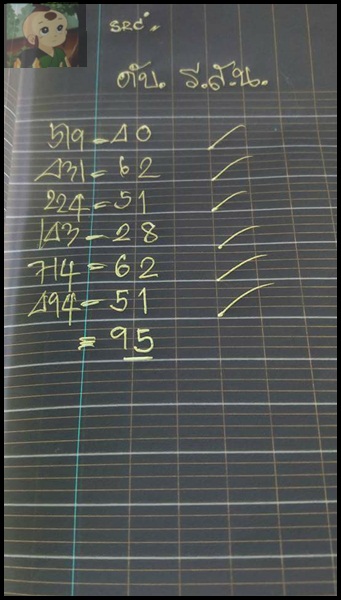 ดับ. ร.สัน.
519 = 40
431 = 62
224 = 51
143 = 28
714 = 62
494 = 51
= 95